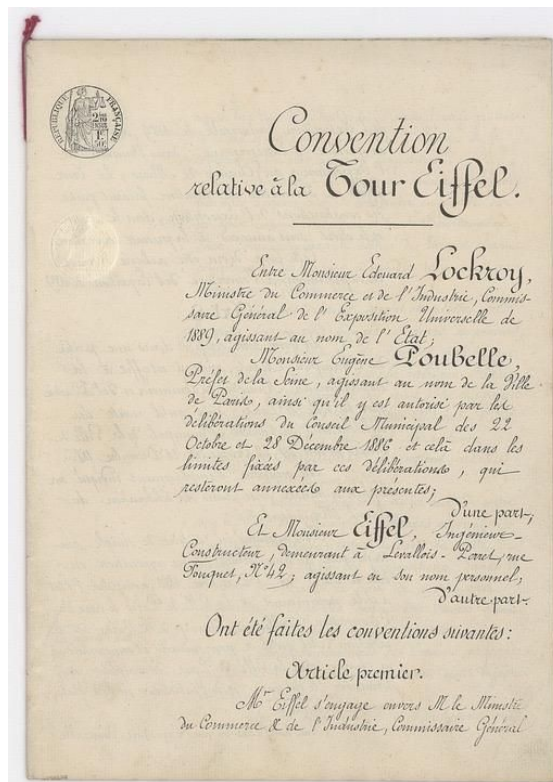 RÉPUBLIQUE FRANÇAISE
Convention
relative à la Tour Eiffel.
Entre Monsieur Edouard Lockroy,
Ministre du Commerce et de l'Industrie, Commis-
saire Général de l'Exposition Universelle de
1889, agissant au nom de l'Etat;
Monsieur Eugène Poubelle,
Préfet de la Seine, agissant au nom de la Ville
de Paris, ainsi qu'il y est autorisé par les
délibérations du Conseil Municipal des 22
Octobre et 28 Décembre 1886 et celà dans les
limites fixées par ces délibérations, qui
resteront annexées aux présentes;
D'une part;
Et Monsieur Eiffel, Ingénieur-
Constructeur, demeurant à Levallois-Perret, rue
Fouquet, N°42; agissant en son nom personnel;
D'autre part.
Ont été faites les conventions suivantes:
Article premier.
Mr Eiffel s'engage envers M le Ministre
du Commerce & de l'Industrie, Commissaire Général